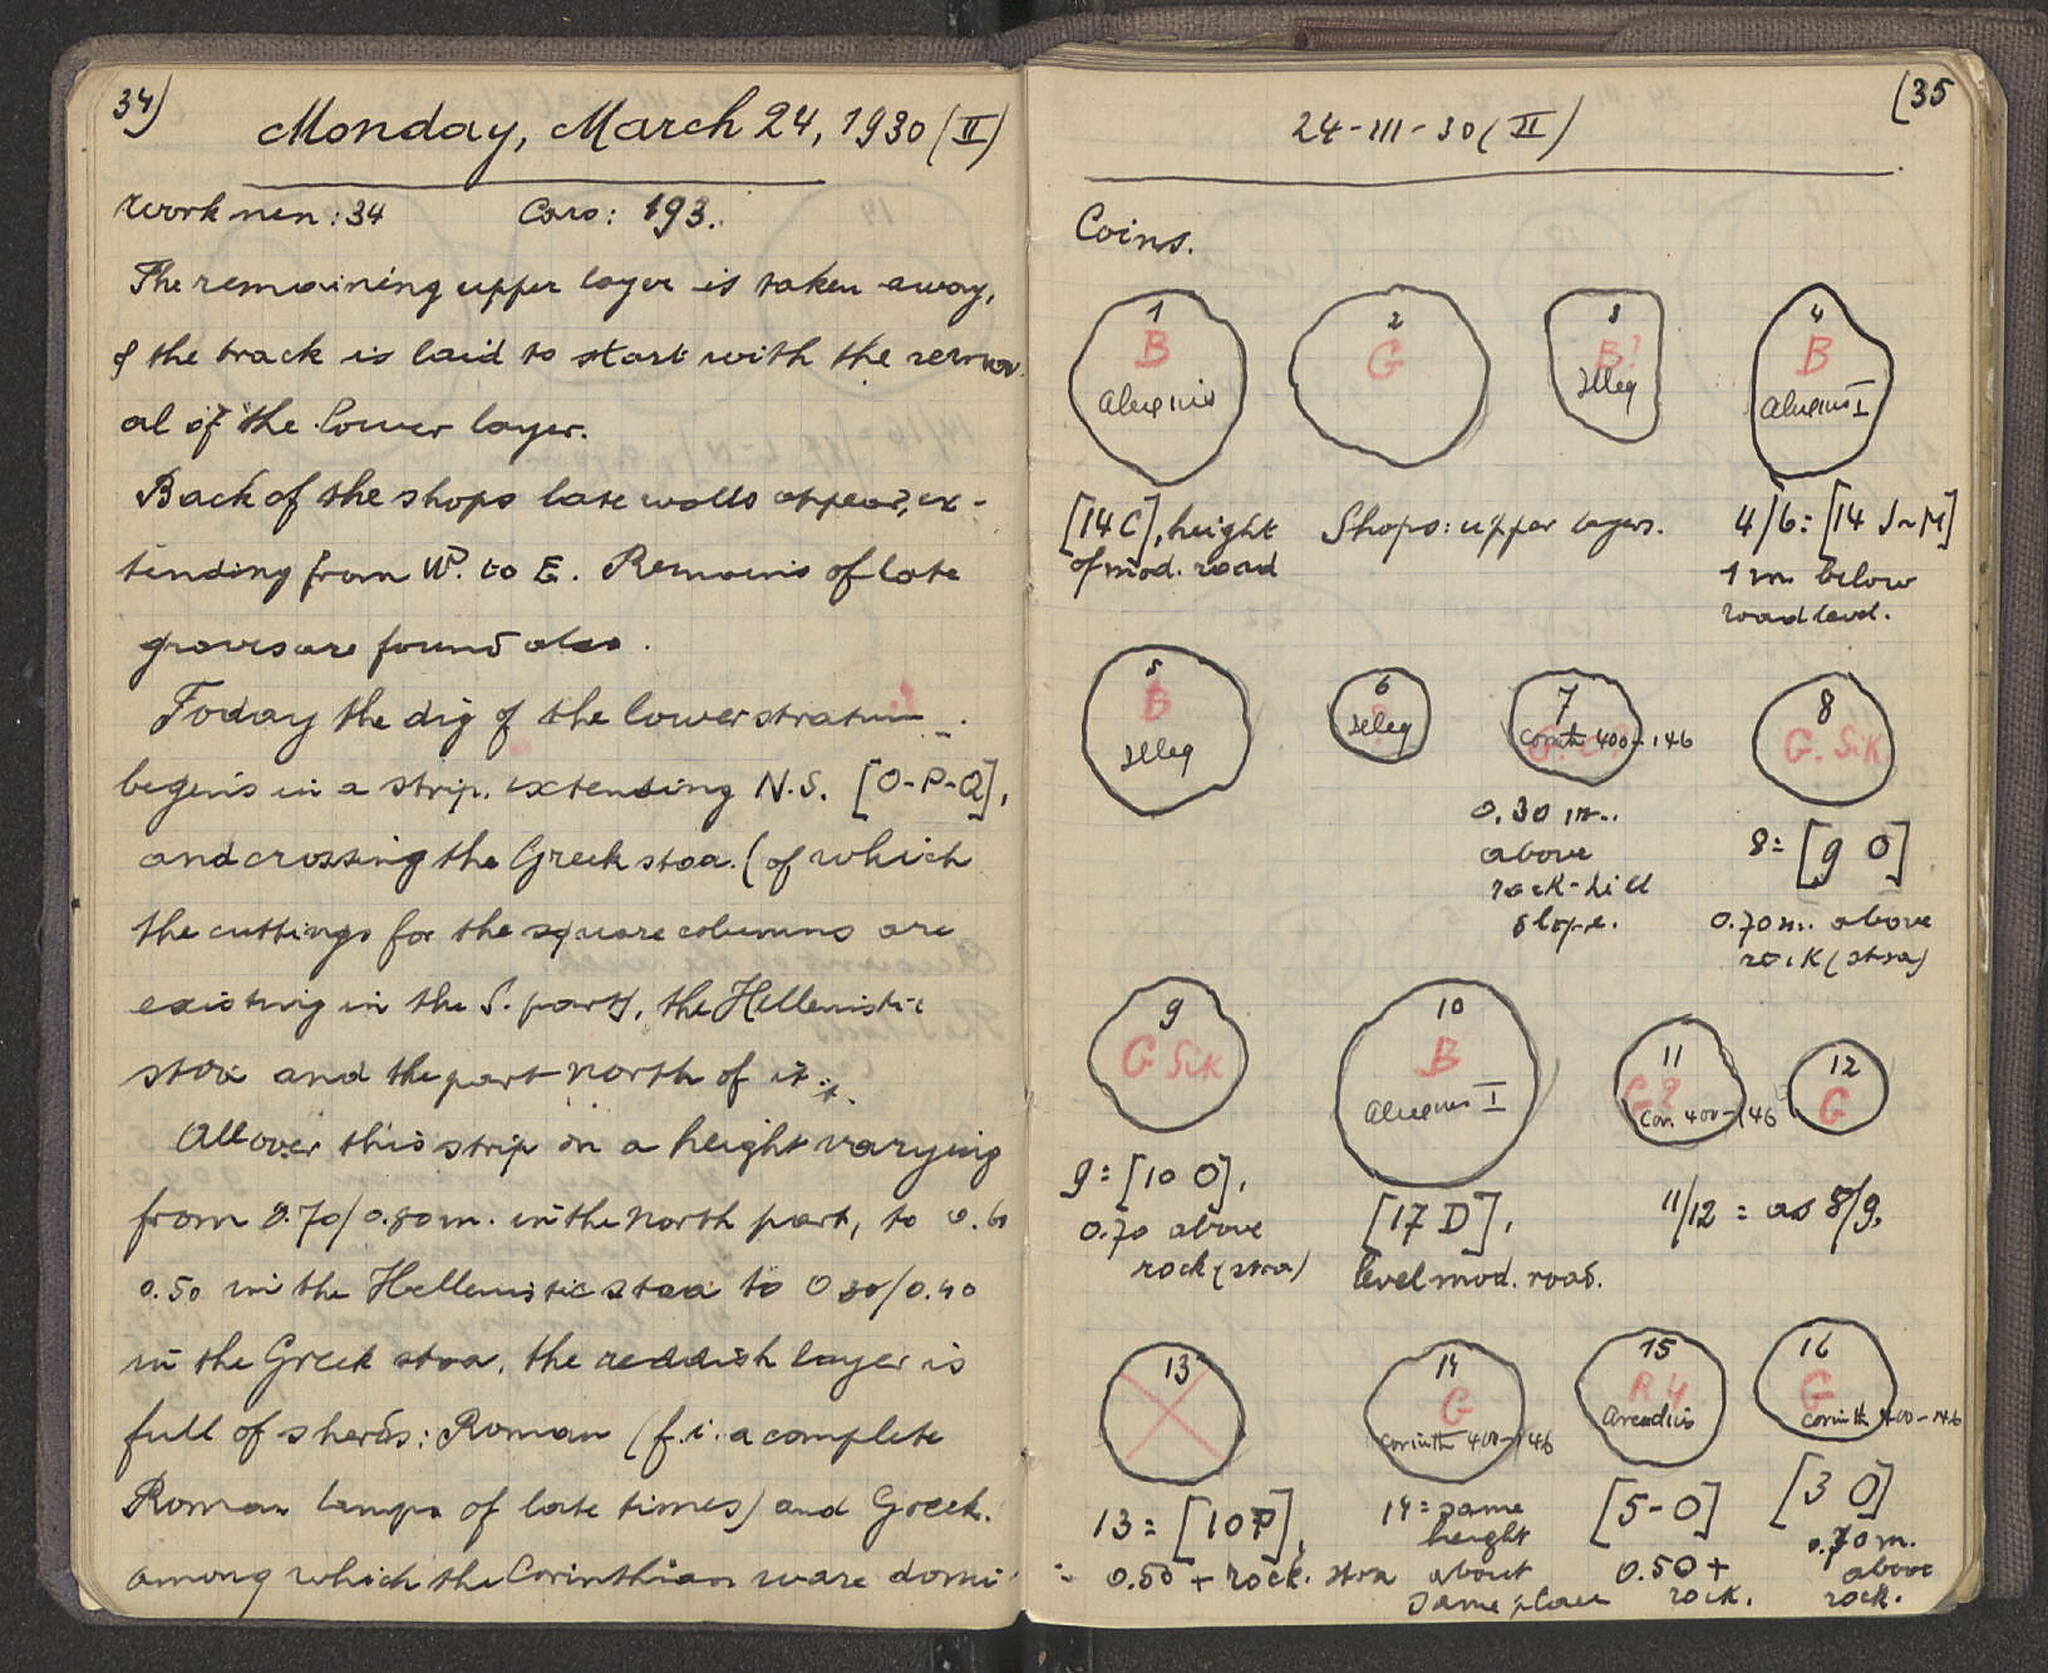 34)
Monday, March 24, 1930 (II)
Workmen: 34 Cars: 193.
The remaining upper layer is taken away,
& the track is laid to start with the remov
al of the lower layer.
Back of the shops late walls appear, ex-
tending from W. to E. Remains of late
graves are found also.
Today the dig of the lower stratum
begins in a strip extending N.S. [O-P-Q],
and crossing the Greek stoa (of which
the cuttings for the square columns are
existing in the S. part), the Hellenistic
stoa and the part north of it.
All over this strip in a height varying
from 0.70/0.80 m. in the north part, to 0.60
0.50 in the Hellenistic stoa to 0.30/0.40
in the Greek stoa, the reddish layer is
full of sherds: Roman (f.i. a complete
Roman lamp of late times) and Greek.
among which the Corinthian ware domi
(35
24-III-30 (II)
Coins.
1 2 3 4
B G B? B
Alexius Illeg Alexius I
[14 C], height Shops: upper layers. 4/6: [14 J-M]
of mod. road 1 m. below
road level.
5 6 7 8
B G. Sik.
Illeg Illeg Corinth 400-146
0.30 m. 8= [9 O]
above 0.70 m. above
rock-hill rock (stoa)
slope.
9 10 11 12
G Sik B G? G
Alexius I Cor. 400-146
9= [10 O], [17 D], 11/12 = as 8/9.
0.70 above level mod. road.
rock (stoa)
13 14 15 16
G R 4 G
Corinth 400-146 Arcadius Corinth 400-146
13= [10P], 14= same [5-O] [3 O]
0.50 + rock. stoa height 0.50 + 0.70 m.
about rock. above
same place rock.